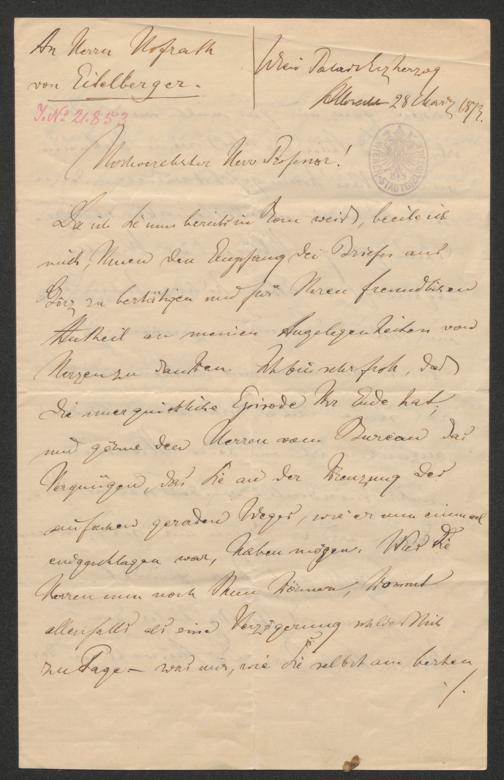 An Herrn Hofrath
von Eitelberger.
Wien Palais Erzherzog
Albrecht 28 März 187
J. Nº 21.853
Hochverehrter Herr Professor!
Da ich Sie nun bereits in Rom weiß, beeile ich
mich, Ihnen den Empfang des Briefes aus
Görz zu bestätigen und für Ihren freundlichen
Antheil an meinen Angelegenheiten von
Herzen zu danken. Ich bin sehr froh, daß
die unerquickliche Episode Ihr Ende hat,
und gönne den Herren vom Bureau das
Vergnügen, das Sie an der Kreuzung des
einfachen geraden Weges, wie er nun einmal
eingeschlagen war, haben mögen. Was die
Herren nun noch thun können, kommt
allenfalls als eine Verzögerung
zu Tage – was mir, wie Sie selbst am besten
./.